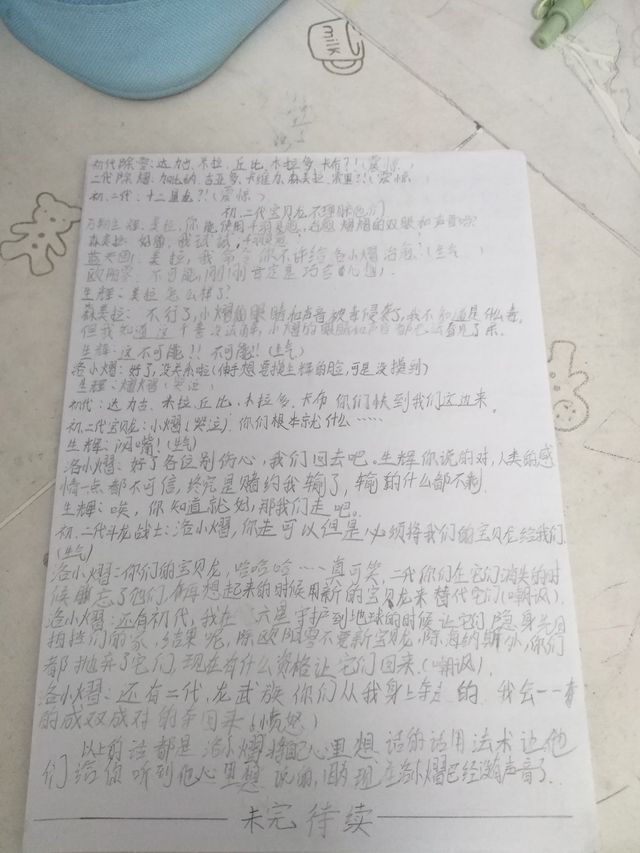 milk
初代除零:达力古、米拉、丘比、木拉多、卡布?!(震惊)
二代除熠:加比纳、古亚多、卡维力、森美拉、索里?!(震惊
初、二代:十二星龙?!(震惊)
初、二代宝贝龙不理睬他们
美拉,你能使用千羽灵愈,治愈熠熠的双眼和声音吗?
森美拉:好的,我试试,千羽灵愈
蓝天画:美拉,我命令你不许给洛小熠治愈!(生气)
欧阳零:不可能,刚刚肯定是巧合
生辉:美拉怎么样了?
森美拉:不行了,小熠的眼睛和声音被毒侵袭了,我不知道是什么毒,
但我知道这个毒没法解,小熠的眼睛和声音都已
生辉:这不可能!!不可能!!(生气)
洛小熠:好了,没关系啦(伸手想要摸上辉的脸,可是没摸到)
生辉:熠熠(哭泣)
初代:达力古、米拉、丘比、木拉多、卡布你们快到我们这边来。
初、二代宝贝龙:小熠(哭泣)你们根本就什么……
生辉:闭嘴!(生气)
洛小熠:好了各位别伤心,我们回去吧。生辉你说的对,人类的感
情一点都不可信,终究是赌约我输了,输的什么都不剩.
生辉:唉,你知道就好,那我们走吧。
初、二代斗龙战士:洛小熠,你走可以但是必须将我们的宝贝龙给我们
(生气)
洛小熠:你们的宝贝龙,哈哈哈……真可笑,二代你们在它们消失的时
候忘了他们,再想起来的时候用新的宝贝龙来替代它们(嘲讽)
洛小熠:还有初代,我在六星守护到地球的时候让它们隐身
你们的家,结果呢,除欧阳零不要新宝贝龙,除海纳斯外,你们
都抛弃了它们,现在有什么资格让它们回来.(嘲讽)
洛小熠:还有二代、龙武族你们从我身上拿走的,我会一一
的成双成对的拿回来(愤怒)
以上的话都是洛小熠将自己心里想说的话用法术让他
们听到他心里想说的,因为现在洛小熠已经没有声音了.
未完待续